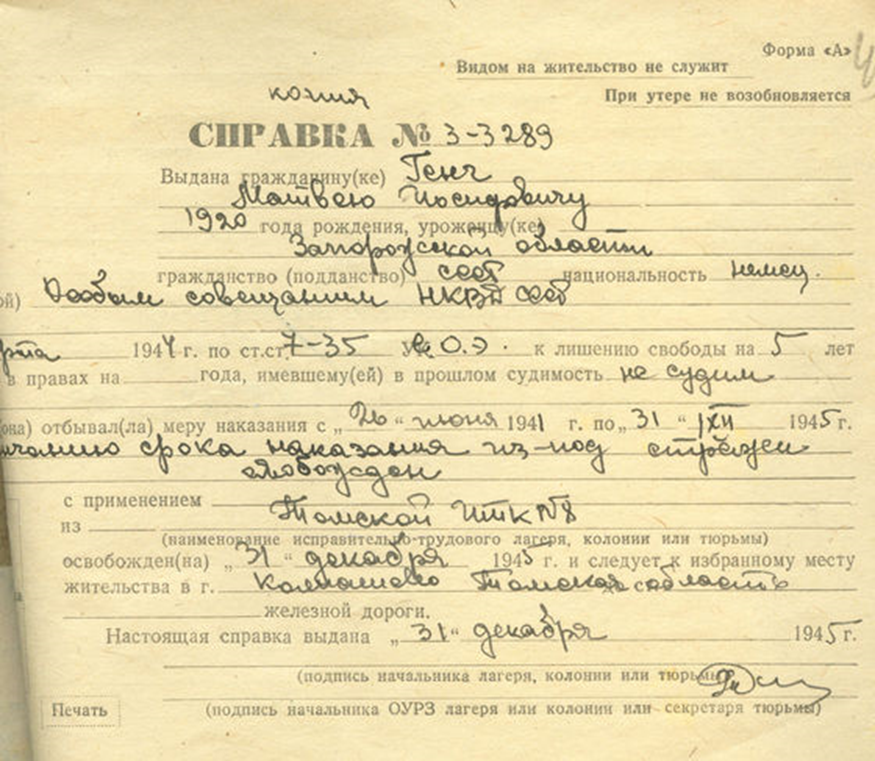 Форма «А»
Видом на жительство не служит
При утере не возобновляется
копия
СПРАВКА № 3-3289
Выдана гражданину(ке) Генч
Матвею Иосифовичу
1920 года рождения, уроженцу(ке)
Запорожской области
гражданство (подданство) СССР национальность немец.
ой) Особым совещанием НКВД СССР
рта 1944 г. по ст.ст. 7-35 УК С.О.Э. к лишению свободы на 5 лет
в правах на года, имевшему(ей) в прошлом судимость не судим
она) отбывал(ла) меру наказания с „26" июня 1941 г. по „31" XII 1945 г.
нчанию срока наказания из-под стражи
освобожден
с применением
из Томской ИТК №8
(наименование исправительно-трудового лагеря, колонии или тюрьмы)
освобожден(на) „31" декабря 1945 г. и следует к избранному месту
жительства в г. Колпашево Томская область
железной дороги.
Настоящая справка выдана „31" декабря 1945 г.
(подпись начальника лагеря, колонии или тюрьмы)
Печать (подпись начальника ОУРЗ лагеря или колонии или секретаря тюрьмы)